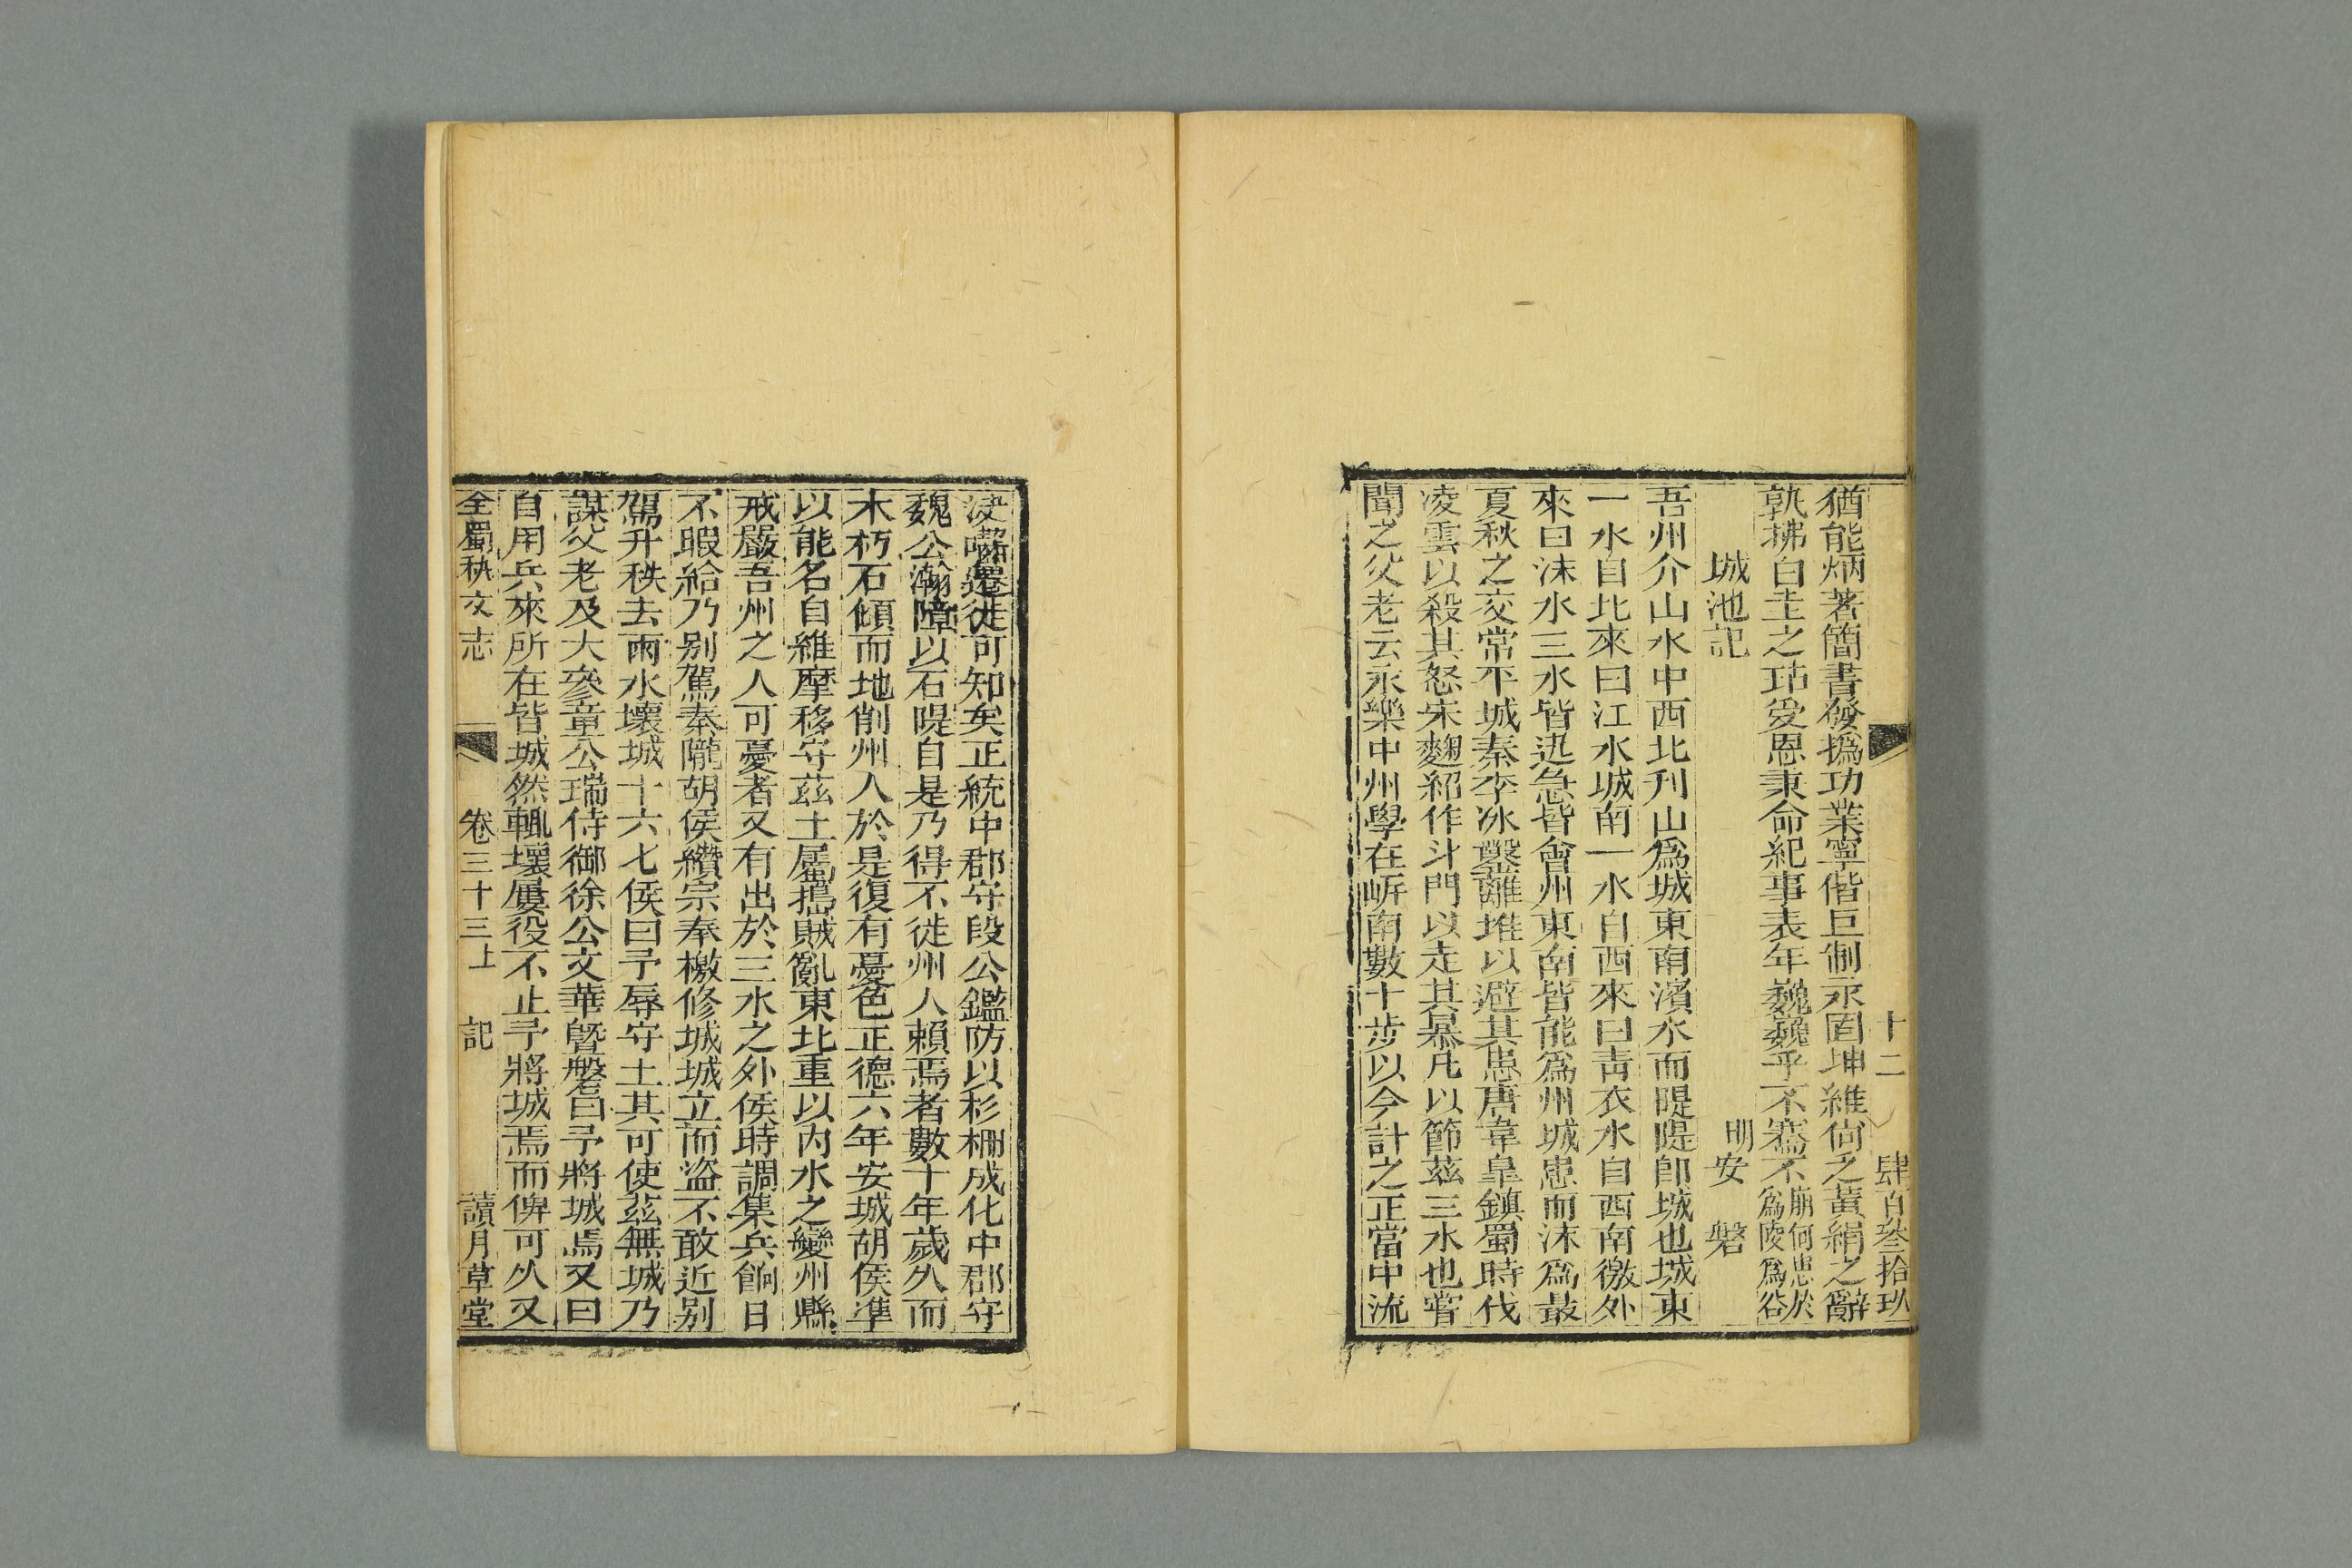 十二 肆百叄拾玖
猶能炳著簡書發撝功業寧偕巨制永固坤維何之黃絹之辭
孰拂白圭之玷爰恩秉命紀事表年巍巍乎不騫不崩何患於爲陵爲谷
城池記 明安 磐
吾州介山水中西北刋山爲城東南濱水而隄隄卽城也城東
一水自北來曰江水城南一水自西來曰靑衣水自西南徼外
來曰沫水三水皆迅急皆會州東南皆能爲州城患而沫爲最
夏秋之交常平城秦李冰鑿離堆以避其患唐韋皐鎮蜀時伐
凌雲以殺其怒宋麴紹作斗門以走其暴凡以節茲三水也甞
聞之父老云永樂中州學在岍南數十步以今計之正當中流
決齧遷徙可知矣正統中郡守段公鑑防以杉柵成化中郡守
魏公瀚障以石隄自是乃得不徙州人賴焉者數十年歲久而
木朽石傾而地削州人於是復有憂色正德六年安城胡侯準
以能名自維摩移守茲土屬搗賊亂東北重以內水之變州縣
戒嚴吾州之人可憂者又有出於三水之外侯時調集兵餉日
不暇給乃别駕秦隴胡侯纘宗奉檄修城城立而盜不敢近别
駕升秩去雨水壞城十六七侯曰予辱守土其可使茲無城乃
謀父老及大參童公瑞侍御徐公文華曁磐曰予將城焉又曰
自用兵來所在皆城然輒壞屢役不止予將城焉而俾可久又
全蜀秇文志 卷三十三上 記 讀月草堂